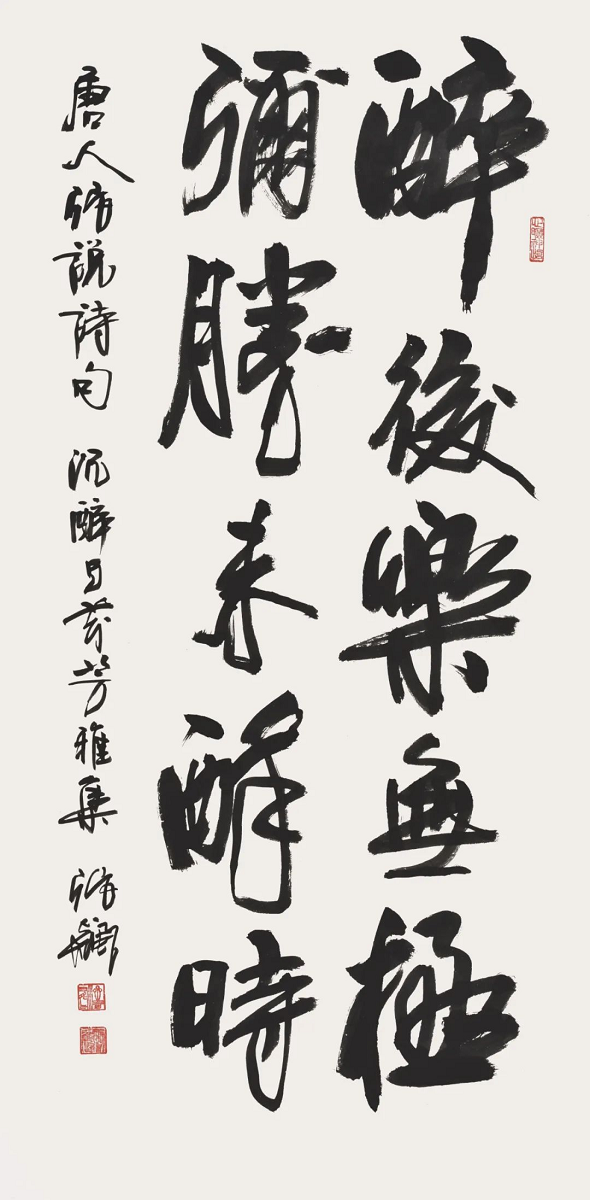 醉後樂無極
彌勝未醉時
唐人張說詩句 沉醉芳雅集 張